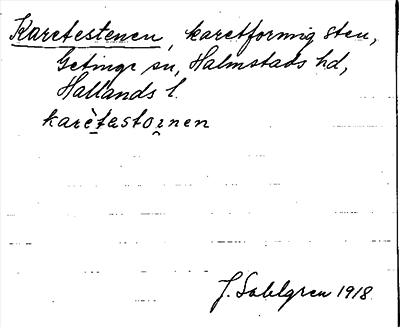 Karetestenen, karetformig sten,
Getinge sn, Halmstads hd,
Hallands l.
karètestoṇnen
J. Sahlgren 1918.